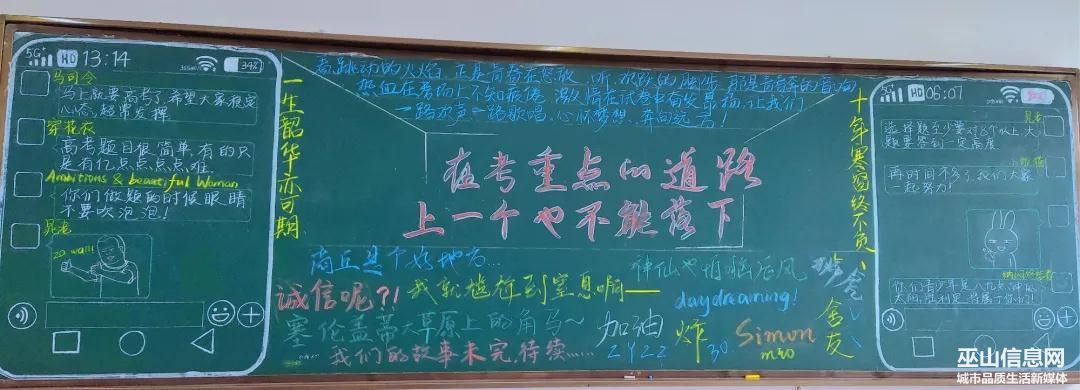 5G+ HD 13:14 34%
马司令
马上就要高考了,希望大家稳定
心态,超常发挥
穿花衣
高考题目很简单,有的只
是有亿点点点点难.
Ambitions & beautiful Woman
你们做题的时候眼睛
不要吹泡泡!
晁老
一生韶华亦可期
看跳动的火焰,正是青春在怒放,听欢跃的
热血在考场上不知疲倦,激情在试卷中有效累扬,让我们
一路欢声一路歌唱,心怀梦想,奔向远方!
在考重点的道路
上一个也不能落下
商丘是个好地方...
神仙也怕脑后风
诚信呢?!
我就尴尬到窒息啊——
daydreaming!
塞伦盖蒂大草原上的角马~
加油
ZYZZ
炸
30
Simon
我们的故事未完,待续......
舍友
十年寒窗终不负
5G+ HD 06:07
晁老
选择题至少要对8个以上,大
题要答到一定高度
再时间不多了,我们大家
一起努力!
你们青少年是八九点钟的
太阳,胜利是当属于你们!
巫山信息网
城市品质生活新媒体